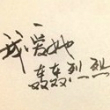 我爱她
轰轰烈烈